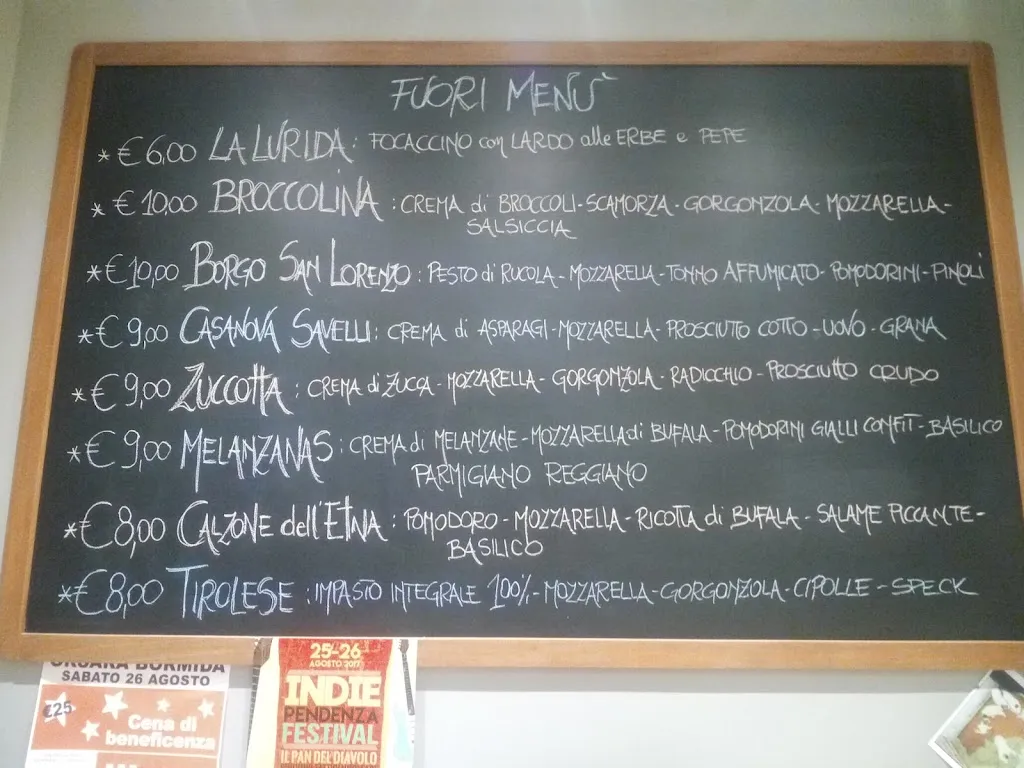 FUORI MENÙ
* € 6,00 LA LURIDA: FOCACCINO con LARDO alle ERBE e PEPE
* € 10,00 BROCCOLINA: CREMA di BROCCOLI-SCAMORZA-GORGONZOLA-MOZZARELLA-
SALSICCIA
* € 10,00 BORGO SAN LORENZO: PESTO di RUCOLA-MOZZARELLA-TONNO AFFUMICATO-POMODORINI-PINOLI
* € 9,00 CASANOVA SAVELLI: CREMA di ASPARAGI-MOZZARELLA-PROSCIUTTO COTTO-UOVO-GRANA
* € 9,00 ZUCCOTTA: CREMA di ZUCCA-MOZZARELLA-GORGONZOLA-RADICCHIO-PROSCIUTTO CRUDO
* € 9,00 MELANZANAS: CREMA di MELANZANE-MOZZARELLA di BUFALA-POMODORINI GIALLI CONFIT-BASILICO
PARMIGIANO REGGIANO
* € 8,00 CALZONE dell'ETNA: POMODORO-MOZZARELLA-RICOTTA di BUFALA-SALAME PICCANTE-
BASILICO
* € 8,00 TIROLESE: IMPASTO INTEGRALE 100%-MOZZARELLA-GORGONZOLA-CIPOLLE-SPECK
ORSARA BORMIDA
SABATO 26 AGOSTO
€25
Cena di
beneficenza
25-26
AGOSTO 2017
INDIE
PENDENZA
FESTIVAL
IL PAN DEL DIAVOLO